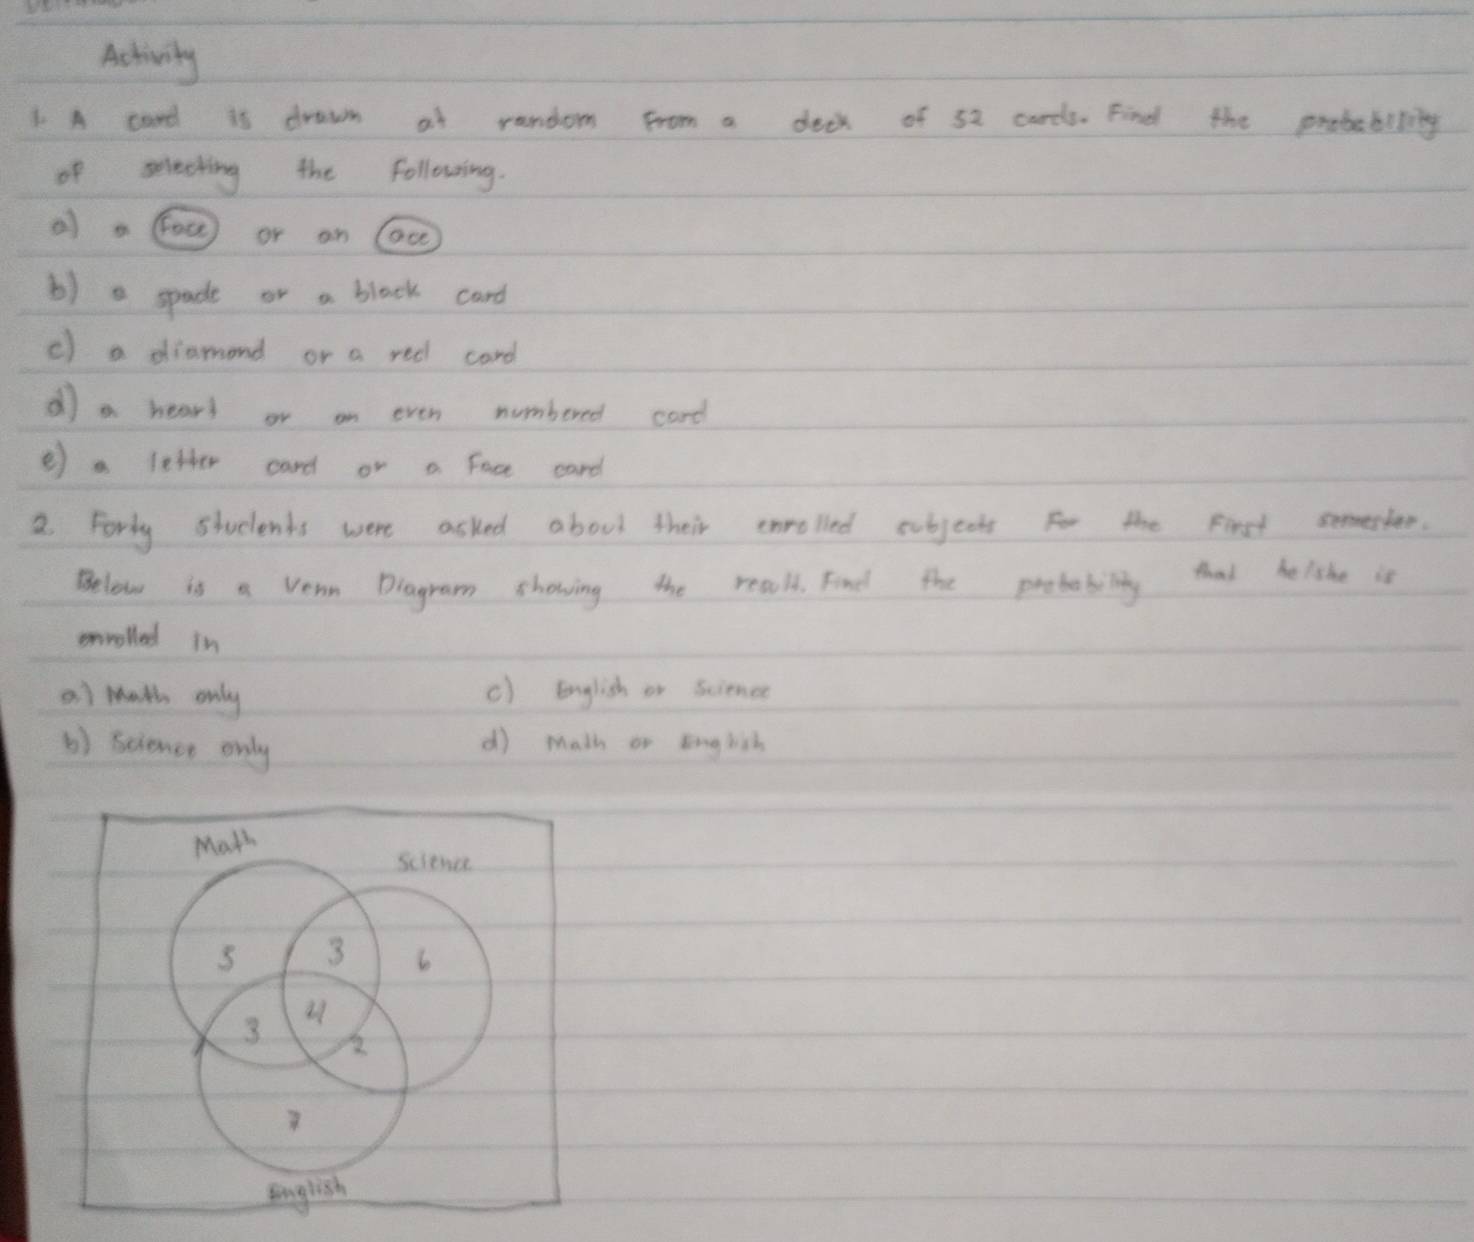 Activity
1. A card is drawn at random from a deck of 52 cards. Find the probability
of selecting the following.
a) a face or an ace
b) a spade or a black card
c) a diamond or a red card
d) a heart or an even numbered card
e) a letter card or a face card
2. Forty students were asked about their enrolled subjects for the first semester.
Below is a Venn Diagram showing the result. Find the probability that he/she is
enrolled in
a) Math only c) English or Science
b) Science only d) Math or English
Math
Science
5 3 6
3 4 2
7
English